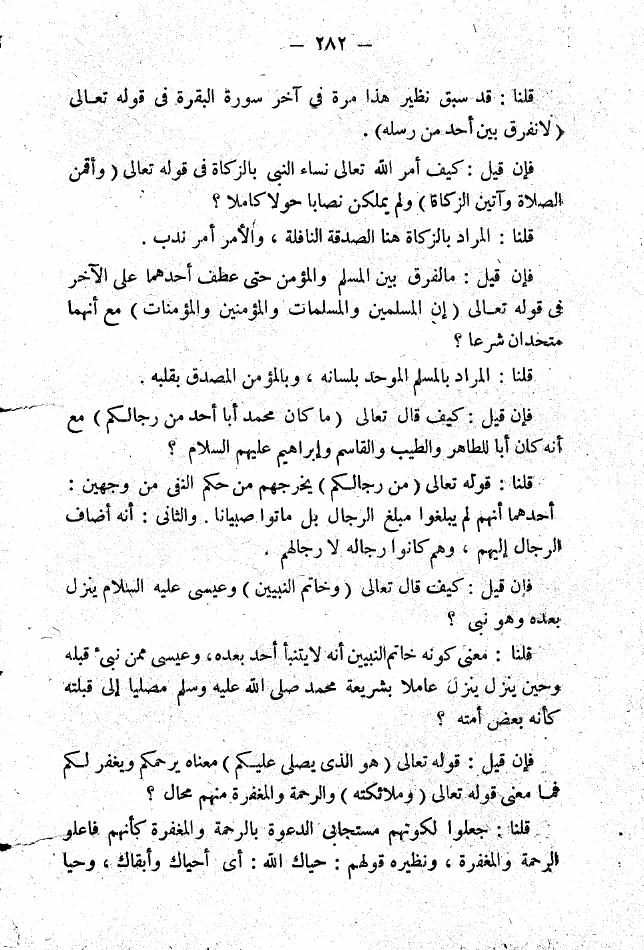 — ٢٨٢ —
قلنا : قد سبق نظير هذا مرة في آخر سورة البقرة في قوله تعـالى
( لانفرق بين أحد من رسله) .
فإن قيل : كيف أمر الله تعالى نساء النبى بالزكاة فى قوله تعالى ( وأقمن
الصلاة وآتين الزكاة ) ولم يملكن نصابا حولا كاملا ؟
قلنا : المراد بالزكاة هنا الصدقة النافلة ، والأمر أمر ندب .
فإن قيل : مالفرق بين المسلم والمؤمن حتى عطف أحدهما على الآخر
فى قوله تعـالى ( إن المسلمين والمسلمات والمؤمنين والمؤمنات ) مع أنهما
متحدان شرعا ؟
قلنا : المراد بالمسلم الموحد بلسانه ، وبالمؤمن المصدق بقلبه .
فإن قيل : كيف قال تعالى ( ما كان محمد أبا أحد من رجالـكم ) مع
أنه كان أبا للطاهر والطيب والقاسم وإبراهيم عليهم السلام ؟
قلنا : قوله تعالى ( من رجالـكم ) يخرجهم من حكم النفى من وجهين :
أحدهما أنهم لم يبلغوا مبلغ الرجال بل ماتوا صبيانا . والثانى : أنه أضاف
الرجال إليهم ، وهم كانوا رجاله لا رجالهم .
فإن قيل : كيف قال تعالى ( وخاتم النبيين ) وعيسى عليه السلام ينزل
بعده وهو نبى ؟
قلنا : معنى كونه خاتم النبيين أنه لايتنبأ أحد بعده، وعيسى ممن نبىء قبله
وحين ينزل ينزل عاملا بشريعة محمد صلى الله عليه وسلم مصليا إلى قبلته
كأنه بعض أمته ؟
فإن قيل : قوله تعالى ( هو الذى يصلى عليـكم ) معناه يرحمكم ويغفر لـكم
فمـا معنى قوله تعالى ( وملائكته ) والرحمة والمغفرة منهم محال ؟
قلنا : جعلوا لكونهم مستجابى الدعوة بالرحمة والمغفرة كأنهم فاعلو
الرحمة والمغفرة ، ونظيره قولهم : حياك الله : أى أحياك وأبقاك ، وحيا